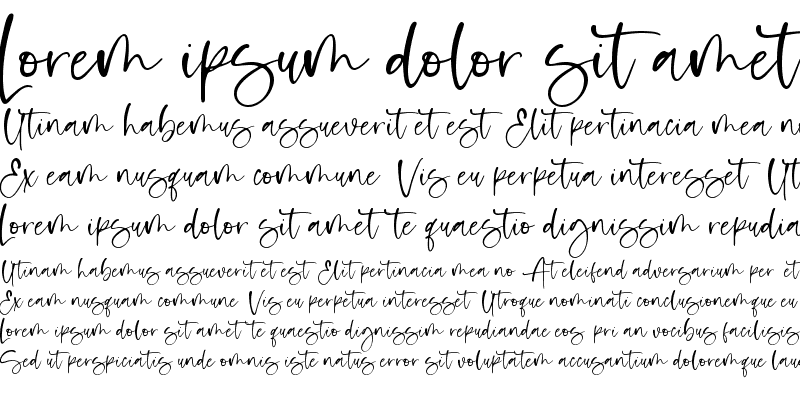 Lorem ipsum dolor sit amet
Utinam habemus assueverit et est Elit pertinacia mea no
Ex eam nusquam commune Vis eu perpetua interesset Ut
Lorem ipsum dolor sit amet te quaestio dignissim repudia
Utinam habemus assueverit et est Elit pertinacia mea no At eleifend adversarium per et
Ex eam nusquam commune Vis eu perpetua interesset Utroque nominati conclusionemque eu
Lorem ipsum dolor sit amet te quaestio dignissim repudiandae eos pri an vocibus facilisis
Sed ut perspiciatis unde omnis iste natus error sit voluptatem accusantium doloremque lau